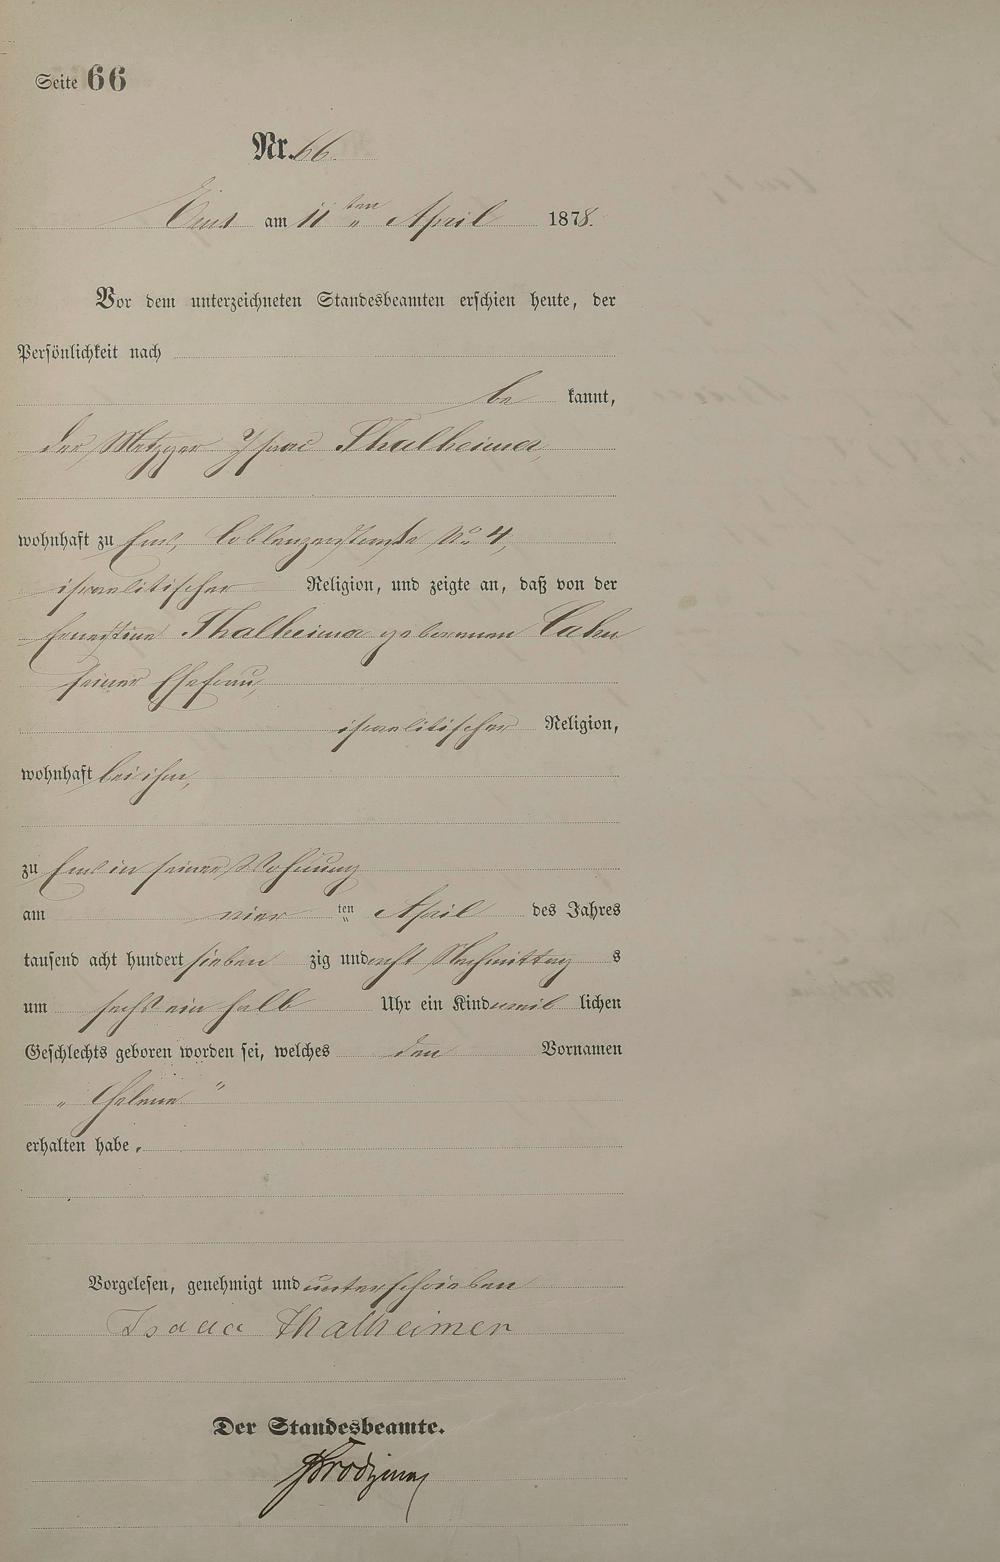 Seite 66
Nr. 66.
Ems am 11 ten April 1878.
Vor dem unterzeichneten Standesbeamten erschien heute, der
Persönlichkeit nach
be kannt,
der Metzger Isaac Thalheimer,
wohnhaft zu Ems, Coblenzerstraße No 4,
israelitischer Religion, und zeigte an, daß von der
Ernestine Thalheimer geborenen Cahn
seiner Ehefrau,
israelitischer Religion,
wohnhaft bei ihm,
zu Ems in seiner Wohnung
am vier ten April des Jahres
tausend acht hundert sieben zig und acht Nachmittag s
um sechs ein halb Uhr ein Kind weib lichen
Geschlechts geboren worden sei, welches den Vornamen
„ Helene "
erhalten habe.
Vorgelesen, genehmigt und unterschrieben
Isaac Thalheimer
Der Standesbeamte.